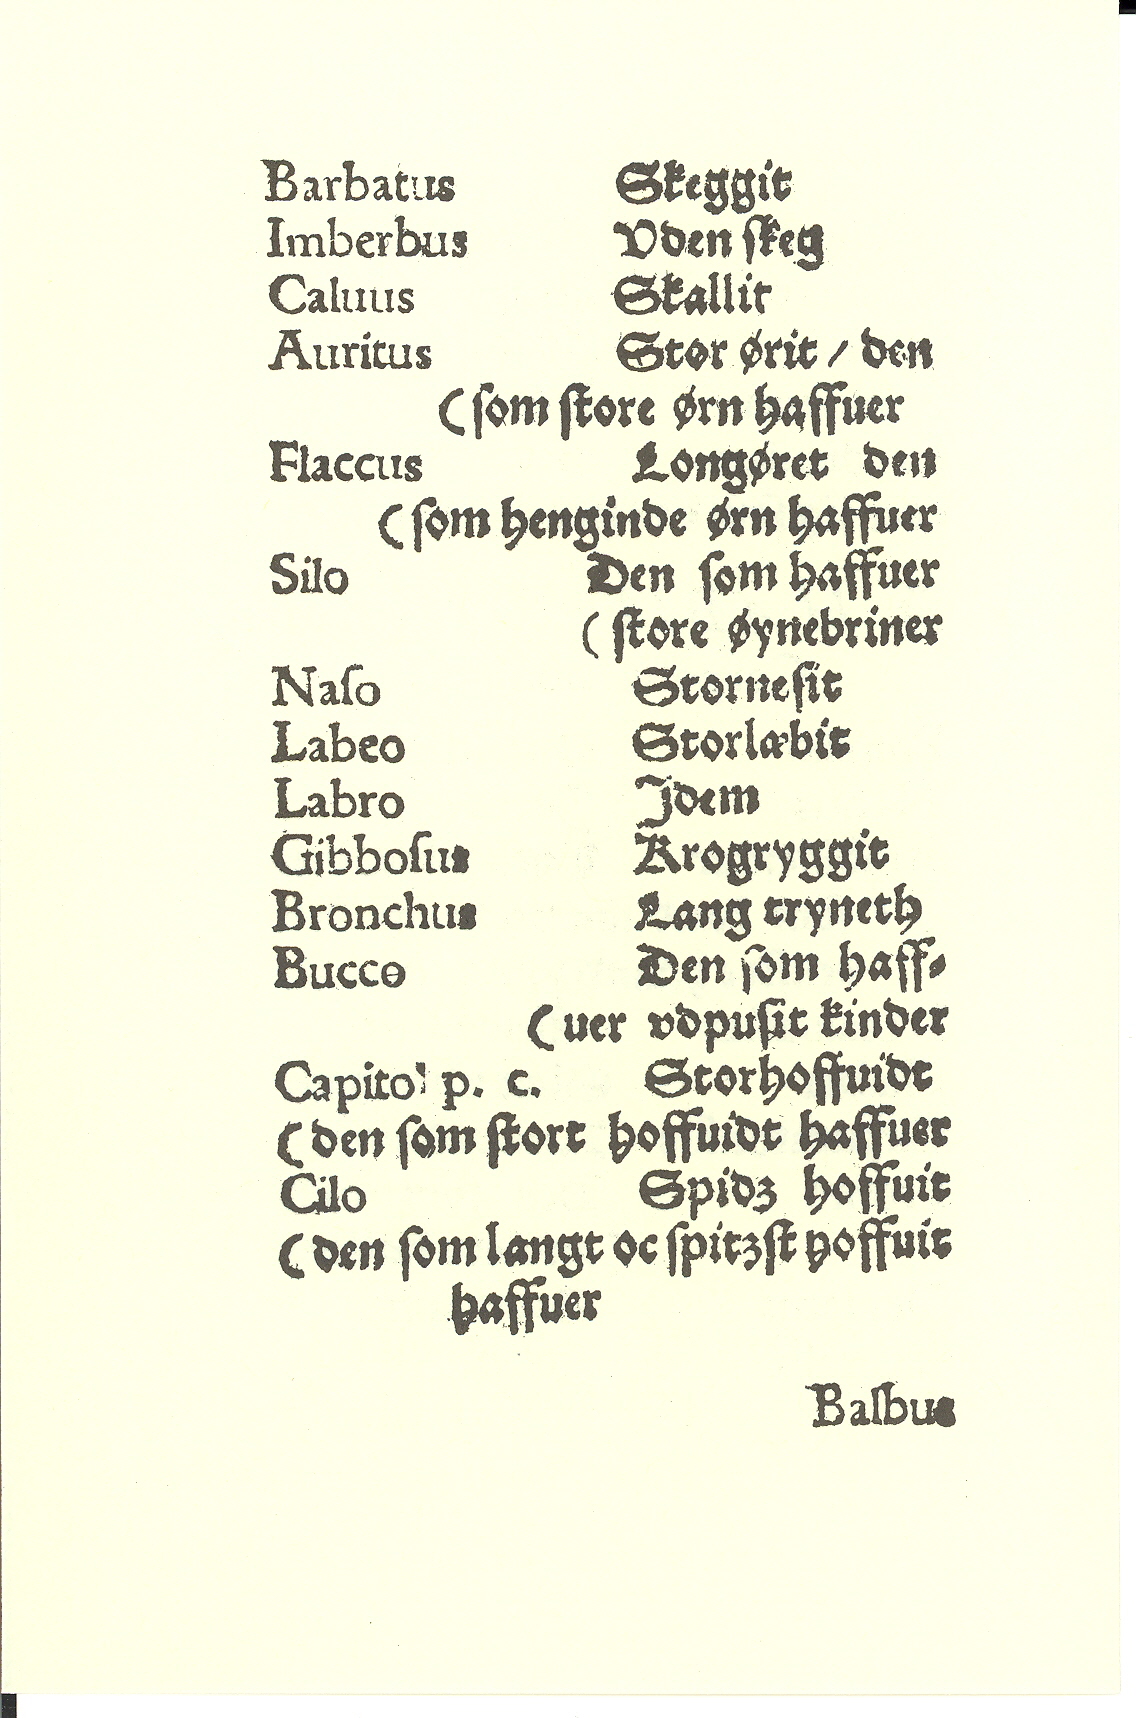 Barbatus Skeggit
Imberbus Vden ſkeg
Caluus Skallit
Auritus Stor ørit / den
(ſom ſtore ørn haffuer
Flaccus Longøret den
(ſom henginde ørn haffuer
Silo Den ſom haffuer
(ſtore øynebriner
Naſo Storneſit
Labeo Storlæbit
Labro Jdem
Gibboſus Krogryggit
Bronchus Lang tryneth
Bucco Den ſom haff⸗
(uer vdpuſit kinder
Capito p. c. Storhoffuidt
(den ſom ſtort hoffuidt haffuer
Cilo Spidz hoffuit
(den ſom langt oc ſpitzſt hoffuit
haffuer
Balbus